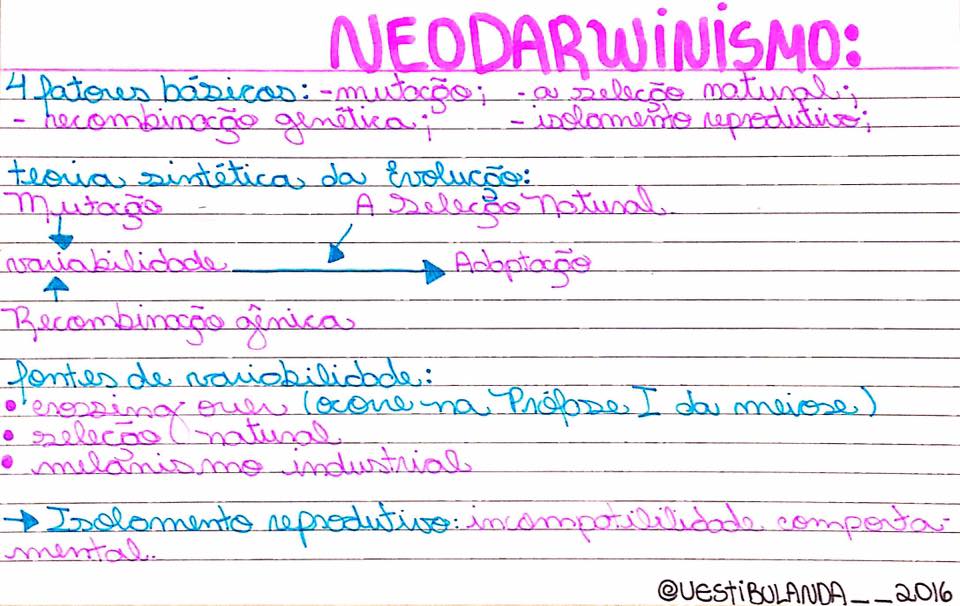 NEODARWINISMO:
4 fatores básicos: - mutação; - a seleção natural;
- recombinação genética; - isolamento reprodutivo;
teoria sintética da Evolução:
Mutação A Seleção Natural
variabilidade Adaptação
Recombinação gênica
fontes de variabilidade:
• crossing over (ocorre na Prófase I da meiose)
• seleção natural
• melanismo industrial
→ Isolamento reprodutivo: incompatibilidade comporta-
mental.
@VESTIBULANDA__2016